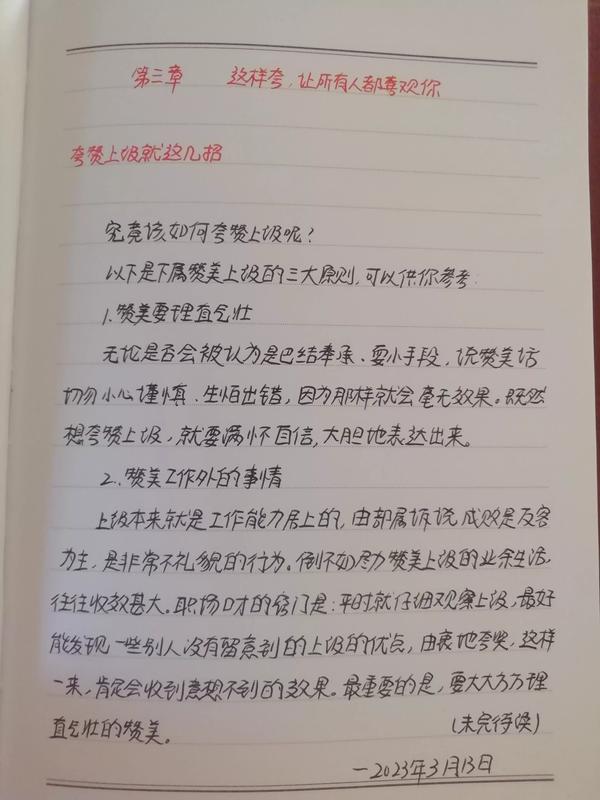 第三章 这样夸,让所有人都喜观你
夸赞上级就这几招
究竟该如何夸赞上级呢?
以下是下属赞美上级的三大原则,可以供你参考:
1.赞美要理直气壮
无论是否会被认为是巴结奉承、耍小手段,说赞美话
切勿小心谨慎、生怕出错,因为那样就会毫无效果。既然
想夸赞上级,就要满怀自信,大胆地表达出来。
2.赞美工作外的事情
上级本来就是工作能力居上的,由部属诉说成败是反客
为主,是非常不礼貌的行为。倒不如尽力赞美上级的业余生活,
往往收效甚大。职场口才的窍门是:平时就仔细观察上级,最好
能发现一些别人没有留意到的上级的优点,由衷地夸奖,这样
一来,肯定会收到意想不到的效果。最重要的是,要大大方方理
直气壮的赞美。 (未完待续)
—2023年3月13日